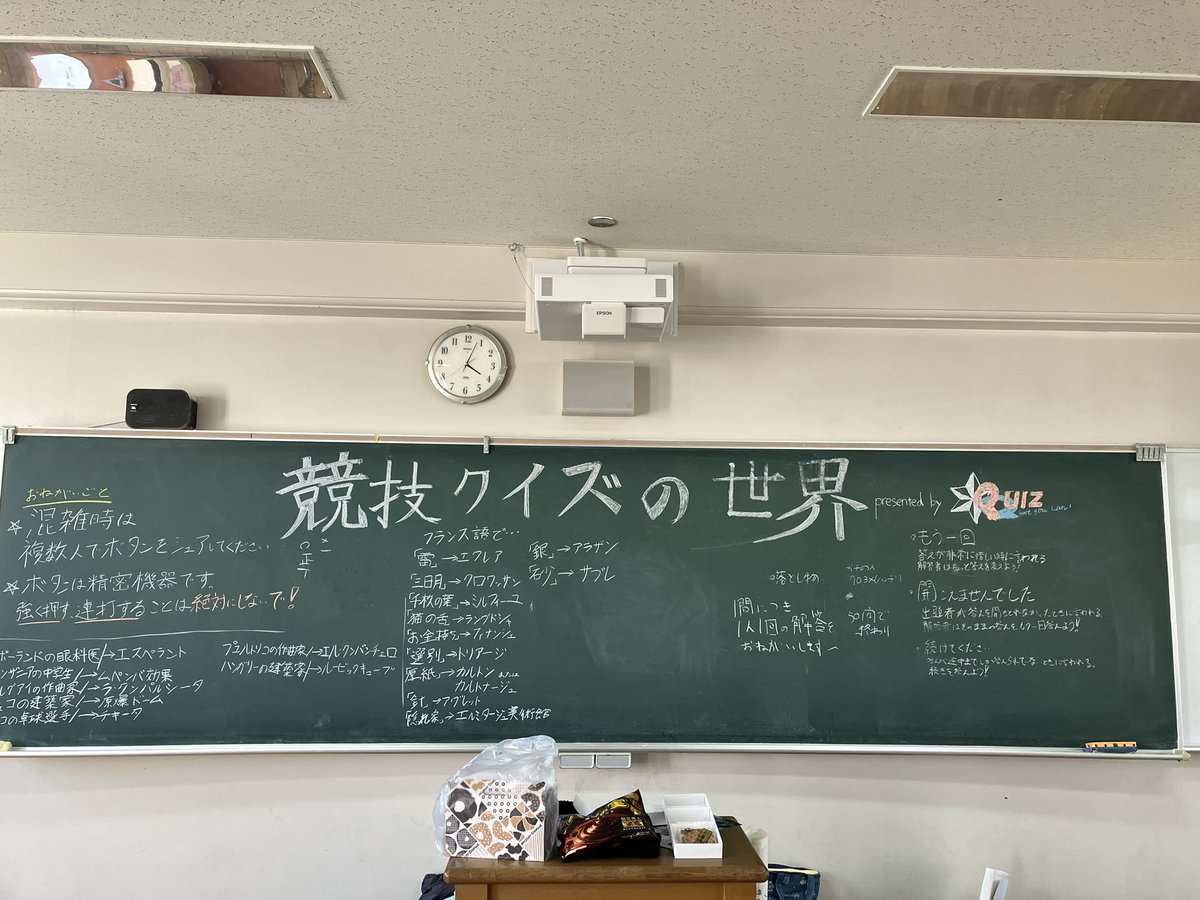 競技クイズの世界
presented by
QUIZ
EPSON
おねがいごと
☆混雑時は
複数人でボタンをシェアしてください
☆ボタンは精密機器です。
強く押す、連打することは絶対にしないで!
ポーランドの眼科医/→エスペラント
ンザニアの中学生/→ムペンバ効果
ルグアイの作曲家/→ラ・クンパルシータ
コの建築家/→原爆ドーム
コの卓球選手/→チキータ
プエルトリコの作曲家/→エル・クンバンチェロ
ハンガリーの建築家/→ルービックキューブ
フランス語で…
「雷」→エクレア
「三日月」→クロワッサン
「千枚の葉」→ミルフィーユ
「猫の舌」→ラングドシャ
「お金持ち」→フィナンシェ
「選別」→トリアージ
「厚紙」→カルトン または
カルトナージュ
「釘」→アグレット
「隠れ家」→エルミタージュ美術館
「銀」→アラザン
「砂」→サブレ
落としもの
1問につき
1人1回の解答を
おねがいします〜
50問で
終わり
・もう一回
答えが非常に惜しい時に言われる
解答者はもっと答えを変えよう!
・聞こえませんでした
出題者が答えを聞きとれなかったときに言われる。
解答者はそのままの答えをもう一回答えよう!!
・続けてください
答えが途中までしか答えられてないときに言われる。
続きを答えよう!!